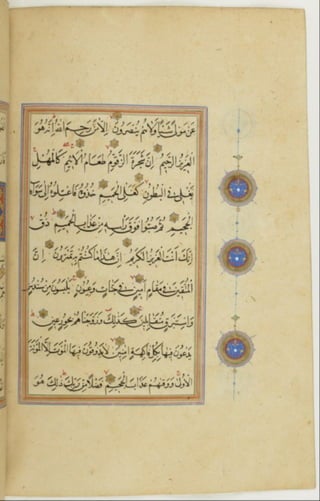 عَنْ مَوْلًى شَيْئًا وَلَا هُمْ يُنْصَرُونَ اِلَّا مَنْ رَحِمَ اللّٰهُ اِنَّهُ هُوَ
الْعَزِيزُ الرَّحِيمُ اِنَّ شَجَرَةَ الزَّقُّومِ طَعَامُ الْاَثِيمِ كَالْمُهْلِ
يَغْلِي فِي الْبُطُونِ كَغَلْيِ الْحَمِيمِ خُذُوهُ فَاعْتِلُوهُ اِلٰى سَوَاءِ
الْجَحِيمِ ثُمَّ صُبُّوا فَوْقَ رَأْسِهِ مِنْ عَذَابِ الْحَمِيمِ ذُقْ
اِنَّكَ اَنْتَ الْعَزِيزُ الْكَرِيمُ اِنَّ هٰذَا مَا كُنْتُمْ بِهِ تَمْتَرُونَ اِنَّ
الْمُتَّقِينَ فِي مَقَامٍ اَمِينٍ فِي جَنَّاتٍ وَعُيُونٍ يَلْبَسُونَ مِنْ سُنْدُسٍ
وَاِسْتَبْرَقٍ مُتَقَابِلِينَ كَذٰلِكَ وَزَوَّجْنَاهُمْ بِحُورٍ عِينٍ
يَدْعُونَ فِيهَا بِكُلِّ فَاكِهَةٍ اٰمِنِينَ لَا يَذُوقُونَ فِيهَا الْمَوْتَ اِلَّا الْمَوْتَةَ
الْاُولٰى وَوَقٰيهُمْ عَذَابَ الْجَحِيمِ فَضْلًا مِنْ رَبِّكَ ذٰلِكَ هُوَ